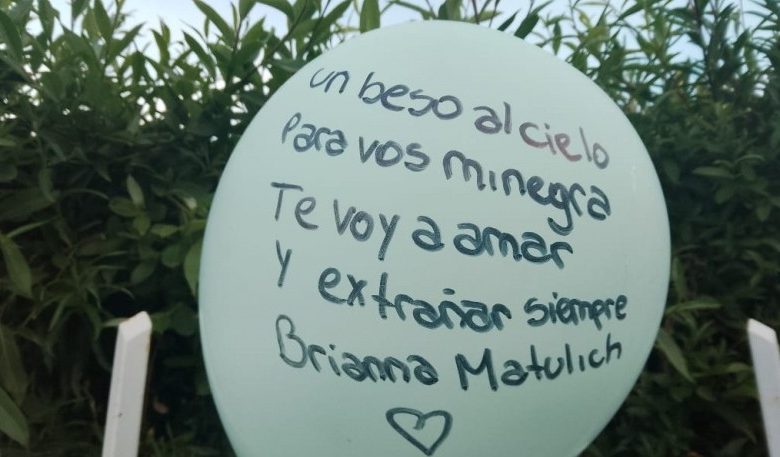 un beso al cielo
Para vos mi negra
Te voy a amar
y extrañar siempre
Brianna Matulich